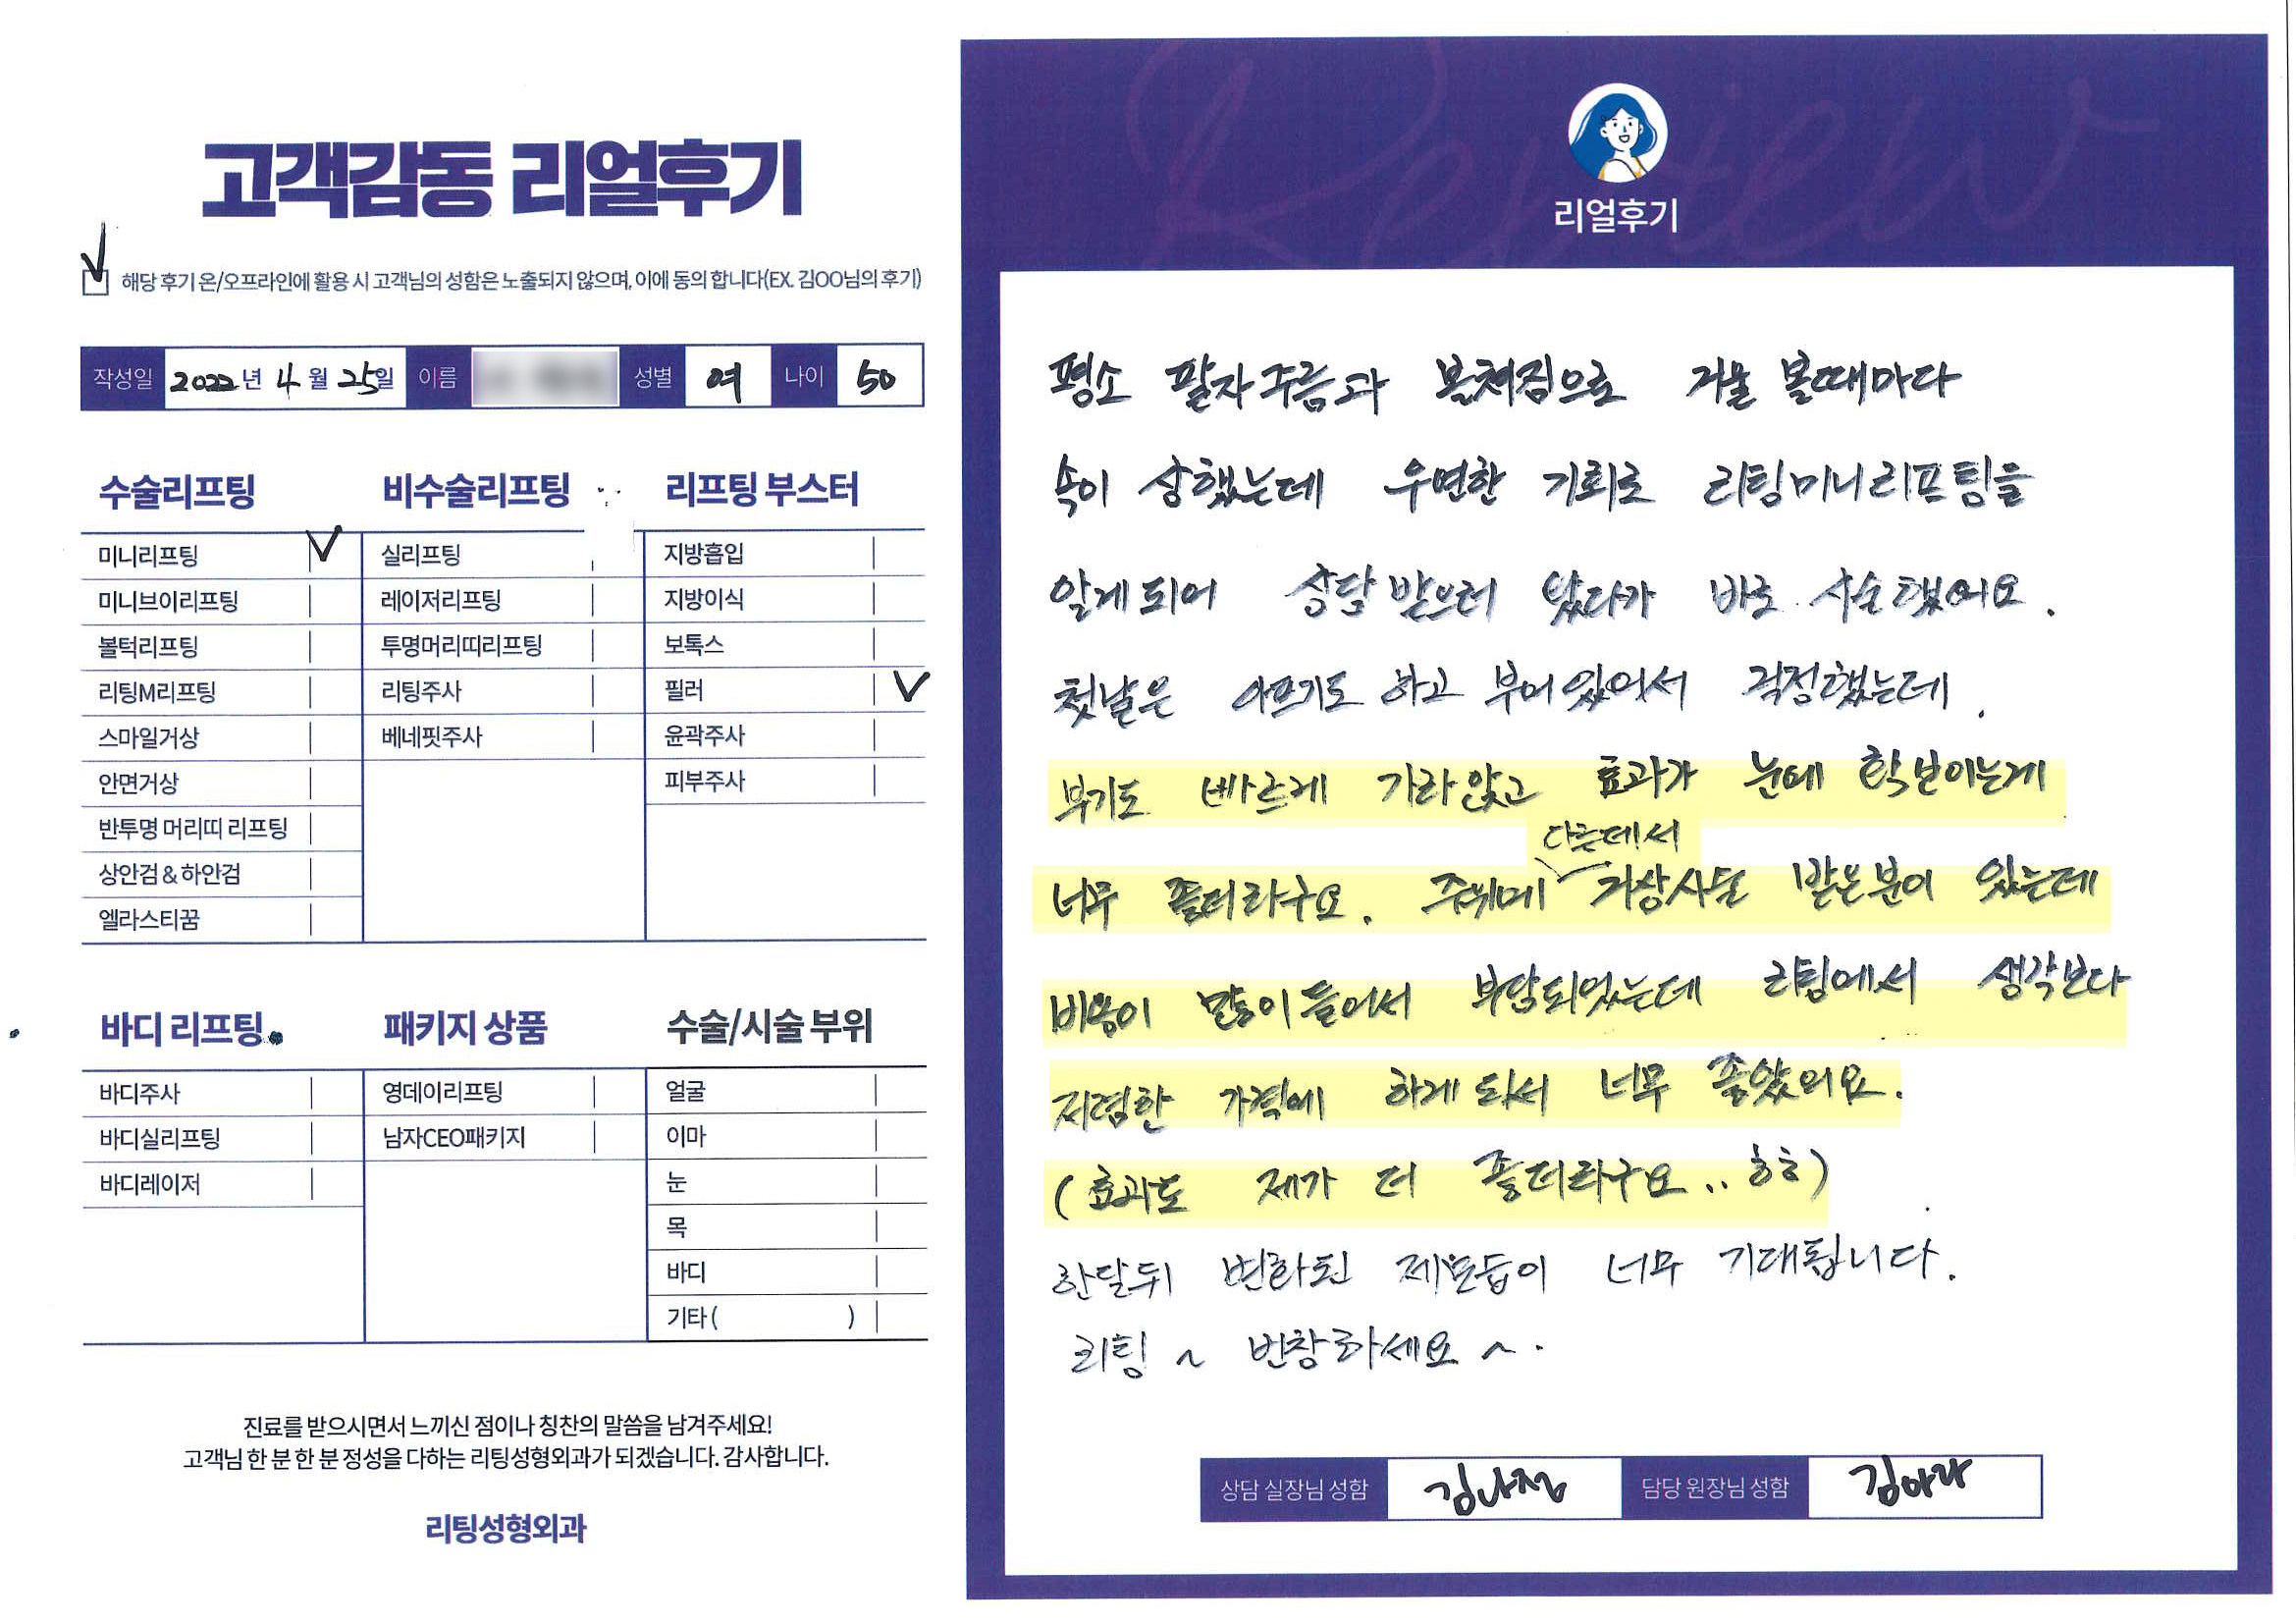 고객감동 리얼후기
해당 후기 온/오프라인에 활용 시 고객님의 성함은 노출되지 않으며, 이에 동의 합니다(EX. 김OO님의 후기)
작성일 2022년 4월 25일 이름 성별 여 나이 50
수술리프팅
미니리프팅
미니브이리프팅
볼턱리프팅
리팅M리프팅
스마일거상
안면거상
반투명 머리띠 리프팅
상안검 & 하안검
엘라스티꿈
비수술리프팅
실리프팅
레이저리프팅
투명머리띠리프팅
리팅주사
베네핏주사
리프팅 부스터
지방흡입
지방이식
보톡스
필러
윤곽주사
피부주사
바디 리프팅
바디주사
바디실리프팅
바디레이저
패키지 상품
영데이리프팅
남자CEO패키지
수술/시술 부위
얼굴
이마
눈
목
바디
기타 ( )
진료를 받으시면서 느끼신 점이나 칭찬의 말씀을 남겨주세요!
고객님 한 분 한 분 정성을 다하는 리팅성형외과가 되겠습니다. 감사합니다.
리팅성형외과
Review
리얼후기
평소 팔자주름과 볼쳐짐으로 거울 볼때마다
속이 상했는데 우연한 기회로 리팅미니리프팅을
알게되어 상담받으러 왔다가 바로 시술했어요.
첫날은 아프기도 하고 부어있어서 걱정했는데.
부기도 빠르게 가라앉고 효과가 눈에 확보이는게
다른데서
너무 좋더라구요. 주위에 거상시술 받은분이 있는데
비용이 많이들어서 부담되었는데 리팅에서 생각보다
저렴한 가격에 하게되서 너무 좋았어요.
(효과도 제가 더 좋더라구요.. ㅎㅎ)
한달뒤 변화된 제모습이 너무 기대됩니다.
리팅 ~ 번창하세요 ~.
상담 실장님 성함 담당 원장님 성함 김아라